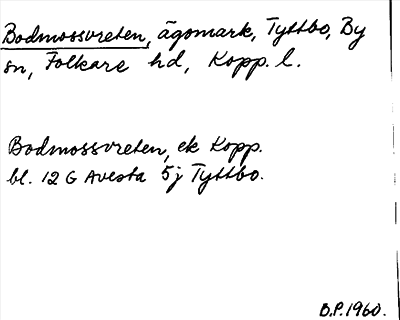 Bodmossvreten, ägomark, Tyttbo, By
sn, Folkare hd, Kopp. l.
Bodmossvreten, ek Kopp.
bl. 12 G Avesta 5j Tyttbo.
B.P. 1960.